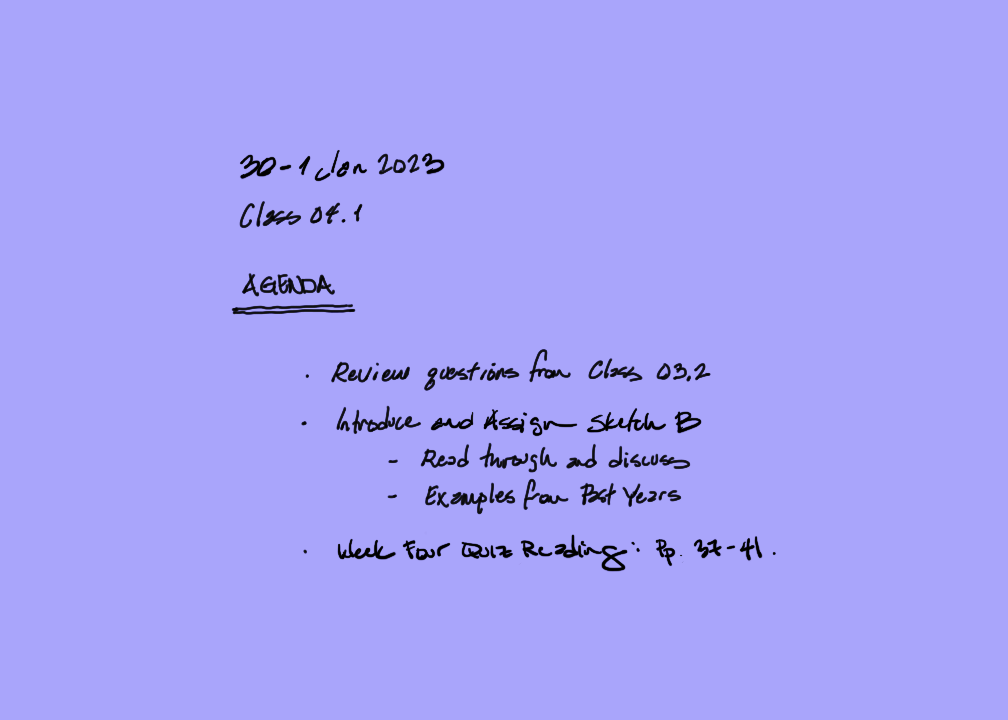 30-1 Jan 2023
Class 04.1
AGENDA
· Review questions from Class 03.2
· Introduce and Assign Sketch B
- Read through and discuss
- Examples from Past Years
· Week Four Quiz Reading: Pp. 37-41.